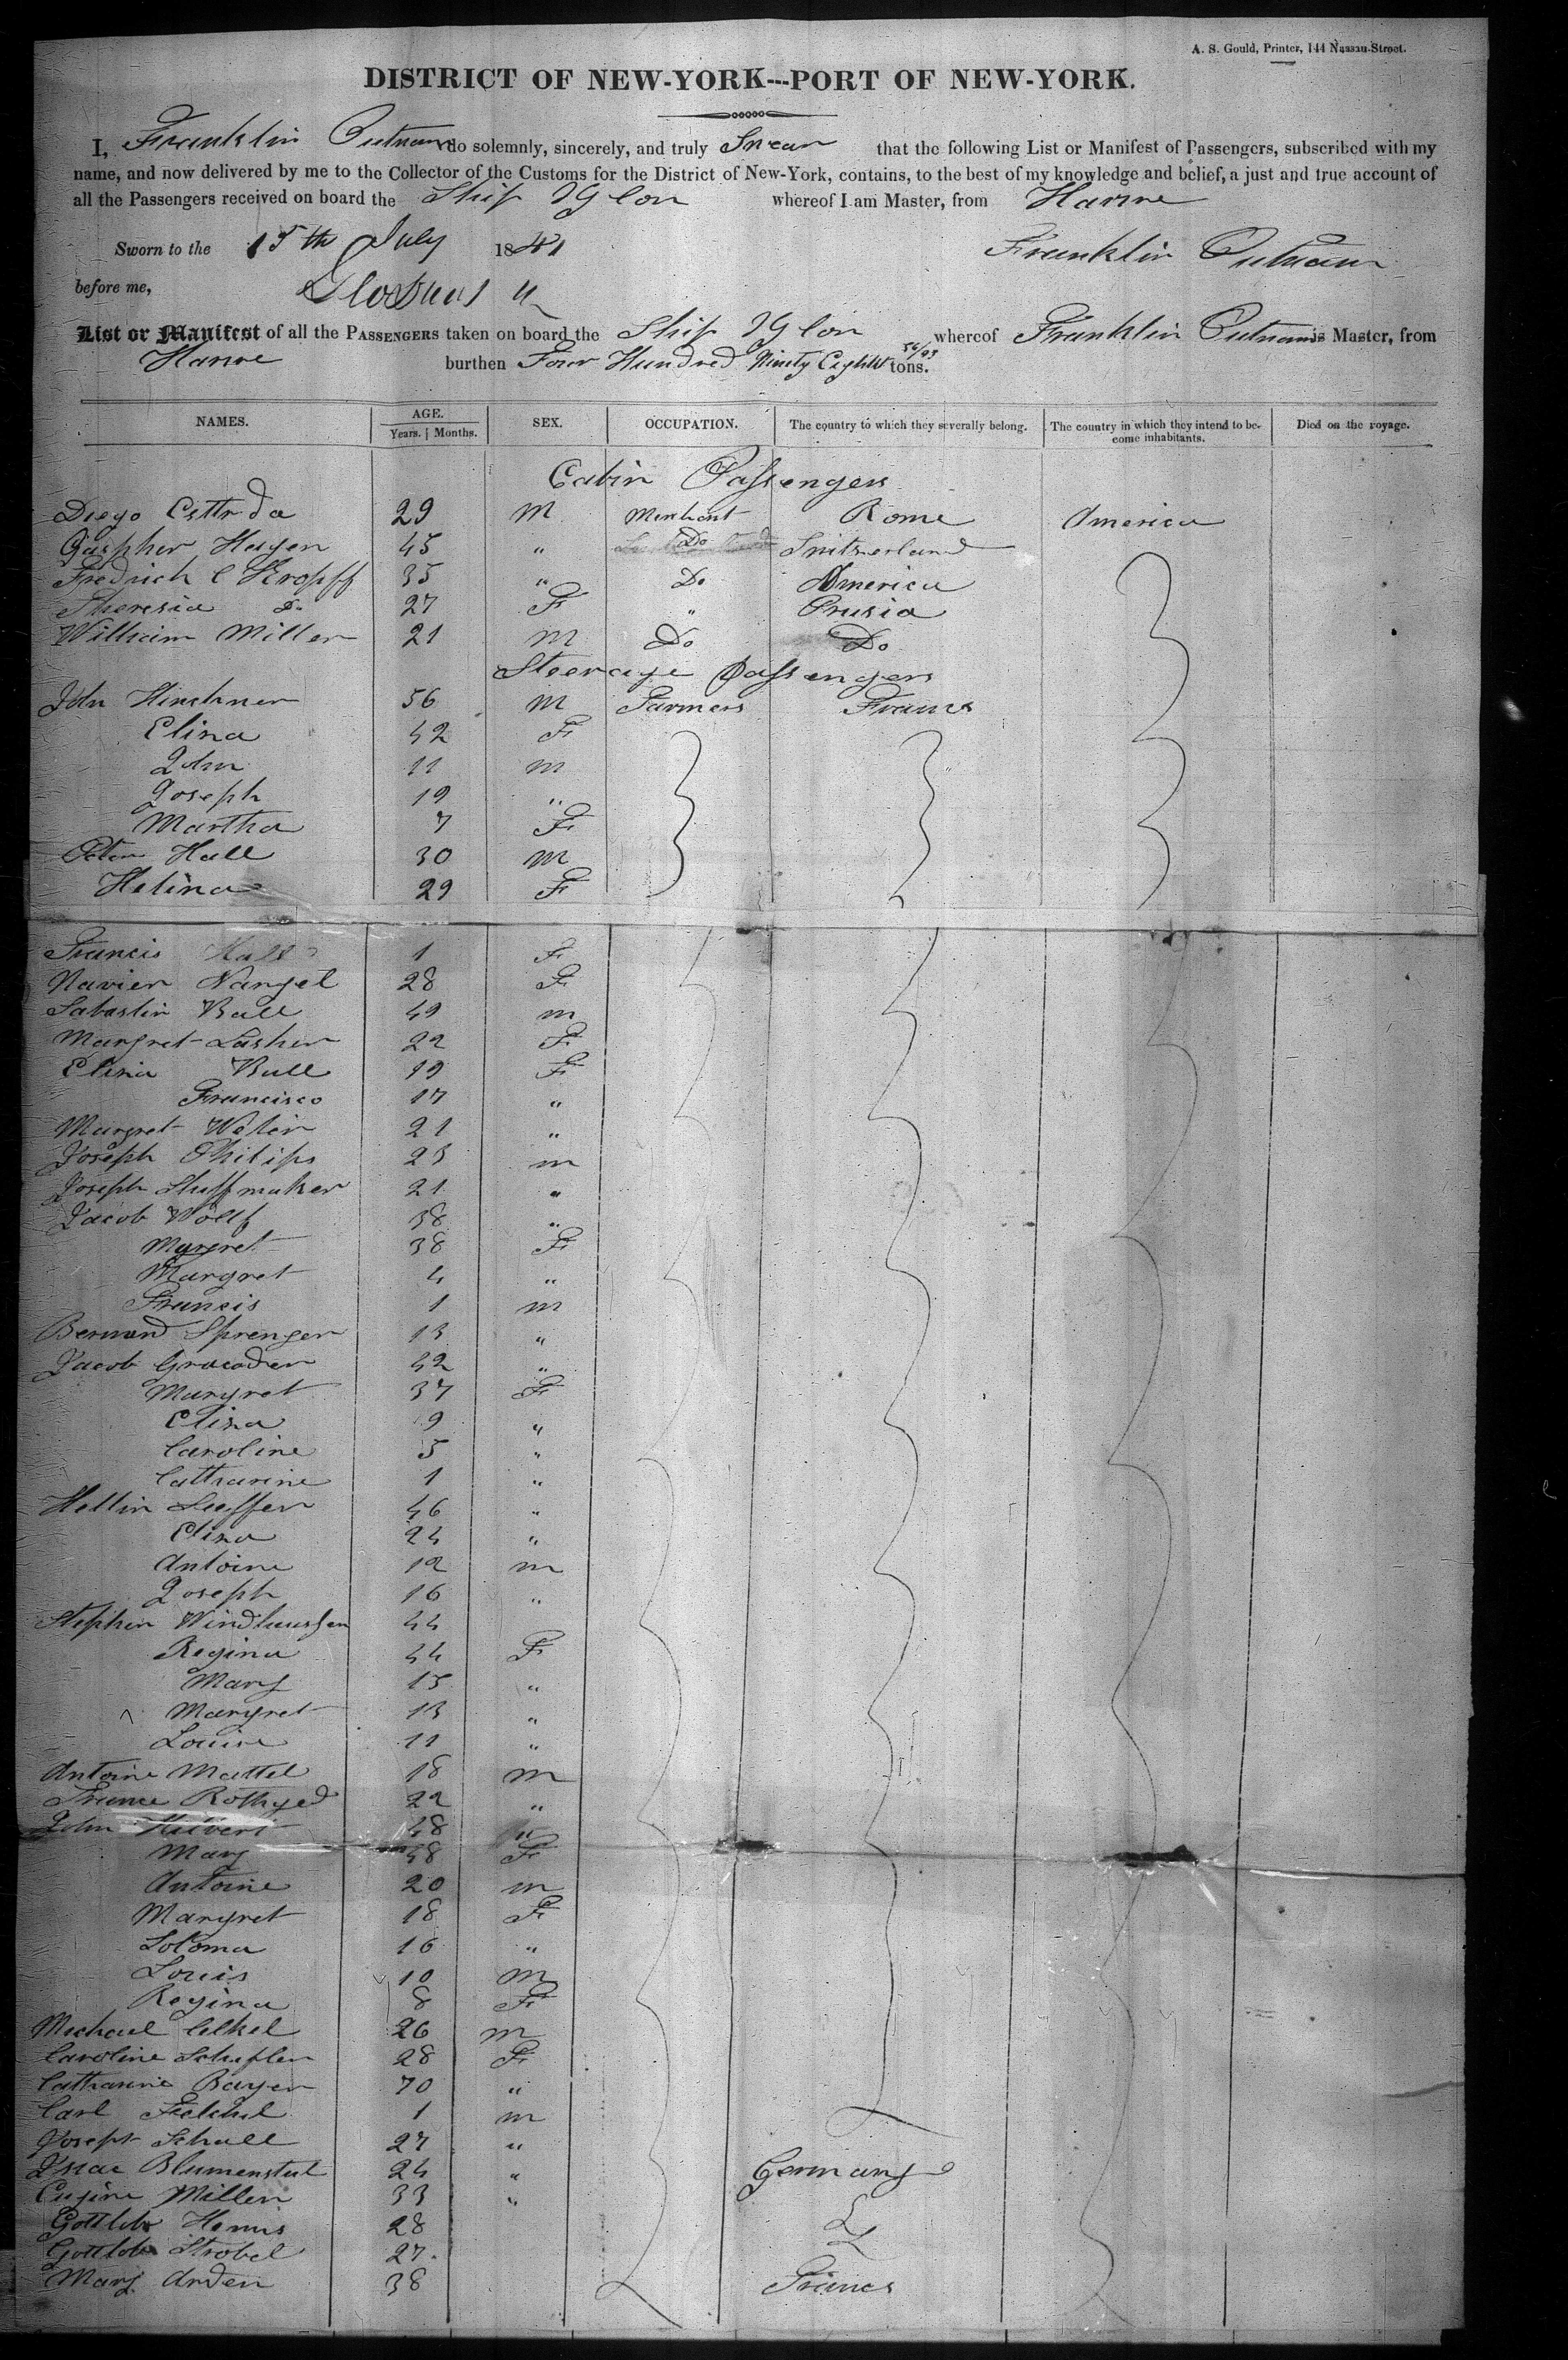 A. S. Gould, Printer, 144 Nassau-Street.
DISTRICT OF NEW-YORK---PORT OF NEW-YORK.
I, Franklin Putnam do solemnly, sincerely, and truly Swear that the following List or Manifest of Passengers, subscribed with my
name, and now delivered by me to the Collector of the Customs for the District of New-York, contains, to the best of my knowledge and belief, a just and true account of
all the Passengers received on board the Ship whereof I am Master, from Havre
Sworn to the 15th July 1841 Franklin Putnam
before me,
List or Manifest of all the PASSENGERS taken on board the Ship whereof Franklin Putnam is Master, from
Havre burthen Four Hundred Ninety Eight tons.
NAMES. AGE. SEX. OCCUPATION. The country to which they severally belong. The country in which they intend to be- Died on the voyage.
Years. Months. come inhabitants.
Cabin Passengers
Diego 29 M Merchant Rome America
Gaspher Hegen 45 " Do Switserland
Fredrich C Kropff 35 " Do America
Theresia Do 27 F " Prusia
William Miller 21 M Do Do
Steerage Passengers
John Hirschner 56 M Farmers France
Elina 42 F
John 11 M
Joseph 19 "
Martha 7 F
Peter Hall 30 M
Helina 29 F
Francis Hall 1 F
Navier Nangel 28 F
Sabastin Ball 49 M
Margret Lasher 22 F
Elisa Bull 19 F
Francisco 17 "
Margret Welein 21 "
Joseph Philips 23 M
Joseph Stuffmaker 21 "
Jacob Wolff 38 "
Margret 38 F
Margret 4 "
Francis 1 M
Bernard Sprenger 13 "
Jacob Gracoder 42 "
Margret 37 F
Elisa 9 "
Caroline 5 "
Catharine 1 "
Hellin Leeffer 46 "
Elisa 24 "
Antoine 12 M
Joseph 16 "
Stephen Windhaussen 44
Regina 44 F
Mary 15 "
Margret 13 "
Louise 11 "
Antoine Mattel 18 M
France Rothged 22 "
John Hubert 48 "
Mary 48 F
Antoine 20 M
Margret 18 F
Soloma 16 "
Louis 10 M
Regina 8 F
Michael Celkel 26 M
Caroline Schifler 28 F
Catharine Bayer 70 "
Carl 1 M
Joseph Schall 27 "
Isaac Blumenstul 24 " Germany
Eugine Miller 33 "
Gottlob Hemis 28
Gottlob Strobel 27
Mary Arden 38 France